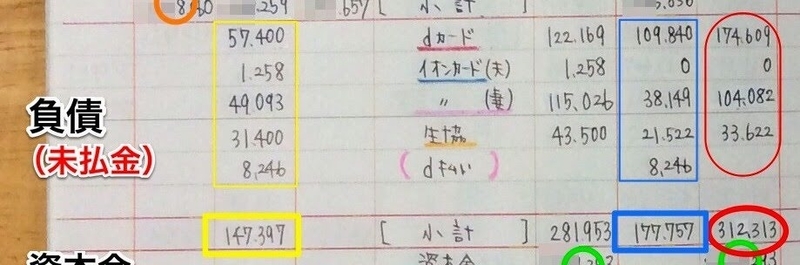 .259 .657 [ 小計
57.400 dカード 122.169 109.840 174.609
1.258 イオンカード(夫) 1.258 0 0
49.093 〃 (妻) 115.026 38,149 104.082
負債
31.400 生協 43.500 21.522 33.622
(未払金)
8,246 (d払い) 8,246
147.397 [ 小計 ] 281953 177.757 312,313
資本金 資本金